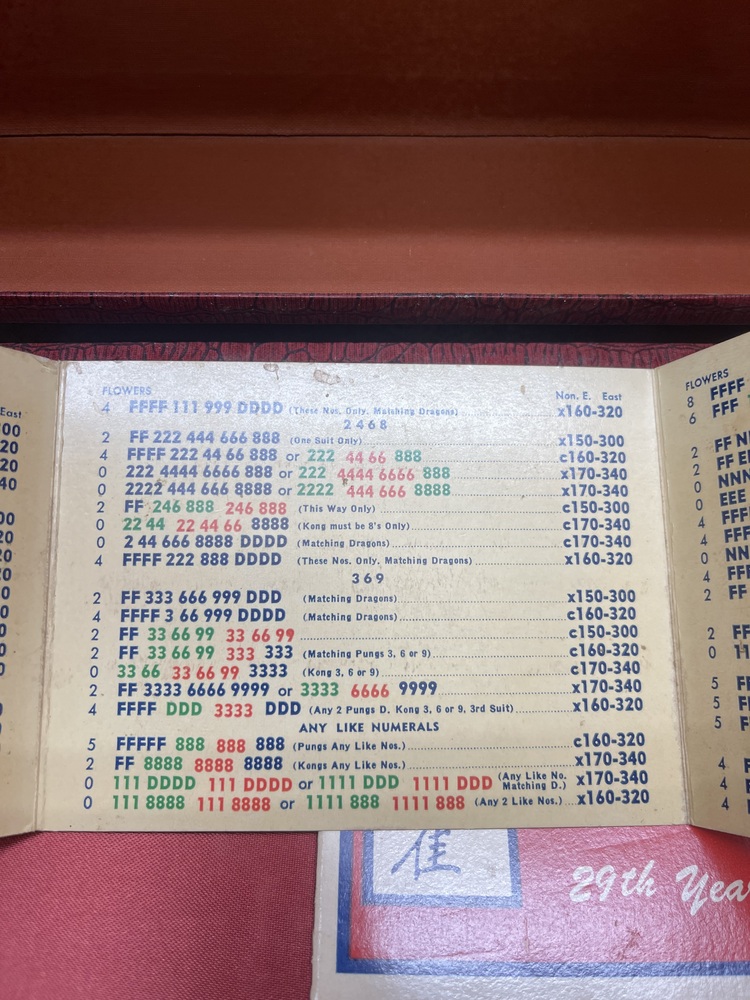 East
00
20
20
40
00
20
20
20
0
0
0
FLOWERS Non. E. East
4 FFFF 111 999 DDDD (These Nos. Only. Matching Dragons) x160-320
2468
2 FF 222 444 666 888 (One Suit Only) x150-300
4 FFFF 222 44 66 888 or 222 44 66 888 c160-320
0 222 4444 6666 888 or 222 4444 6666 888 x170-340
0 2222 444 666 8888 or 2222 444 666 8888 x170-340
2 FF 246 888 246 888 (This Way Only) c150-300
0 22 44 22 44 66 8888 (Kong must be 8's Only) c170-340
0 2 44 666 8888 DDDD (Matching Dragons) c170-340
4 FFFF 222 888 DDDD (These Nos. Only. Matching Dragons) x160-320
369
2 FF 333 666 999 DDD (Matching Dragons) x150-300
4 FFFF 3 66 999 DDDD (Matching Dragons) c160-320
2 FF 33 66 99 33 66 99 c150-300
2 FF 33 66 99 333 333 (Matching Pungs 3, 6 or 9) c160-320
0 33 66 33 66 99 3333 (Kong 3, 6 or 9) c170-340
2 FF 3333 6666 9999 or 3333 6666 9999 x170-340
4 FFFF DDD 3333 DDD (Any 2 Pungs D. Kong 3, 6 or 9, 3rd Suit) x160-320
ANY LIKE NUMERALS
5 FFFFF 888 888 888 (Pungs Any Like Nos.) c160-320
2 FF 8888 8888 8888 (Kongs Any Like Nos.) x170-340
0 111 DDDD 111 DDDD or 1111 DDD 1111 DDD (Any Like No. Matching D.) x170-340
0 111 8888 111 8888 or 1111 888 1111 888 (Any 2 Like Nos.) x160-320
FLOWERS
8 FFFF
6 FFF
2 FF N
2 FF E
0 NNN
0 EEE
4 FFFF
4 FFF
0 NN
4 FFF
2 FF
2 FF
0 11
5 FF
5 FF
5 F
4 F
4 F
4 F
29th Yea